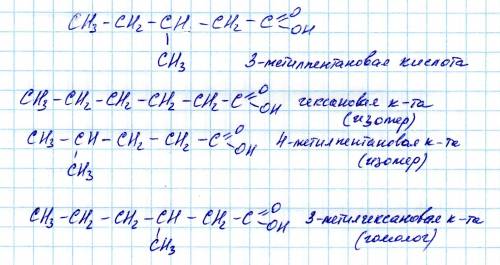 CH₃ – CH₂ – CH – CH₂ – C =O
–OH
CH₃
3-метилпентановая кислота
CH₃ – CH₂ – CH₂ – CH₂ – CH₂ – C =O
–OH
гексановая к-та
(изомер)
CH₃ – CH – CH₂ – CH₂ – C =O
–OH
CH₃
4-метилпентановая к-та
(изомер)
CH₃ – CH₂ – CH₂ – CH – CH₂ – C =O
–OH
CH₃
3-метилгексановая к-та
(гомолог)